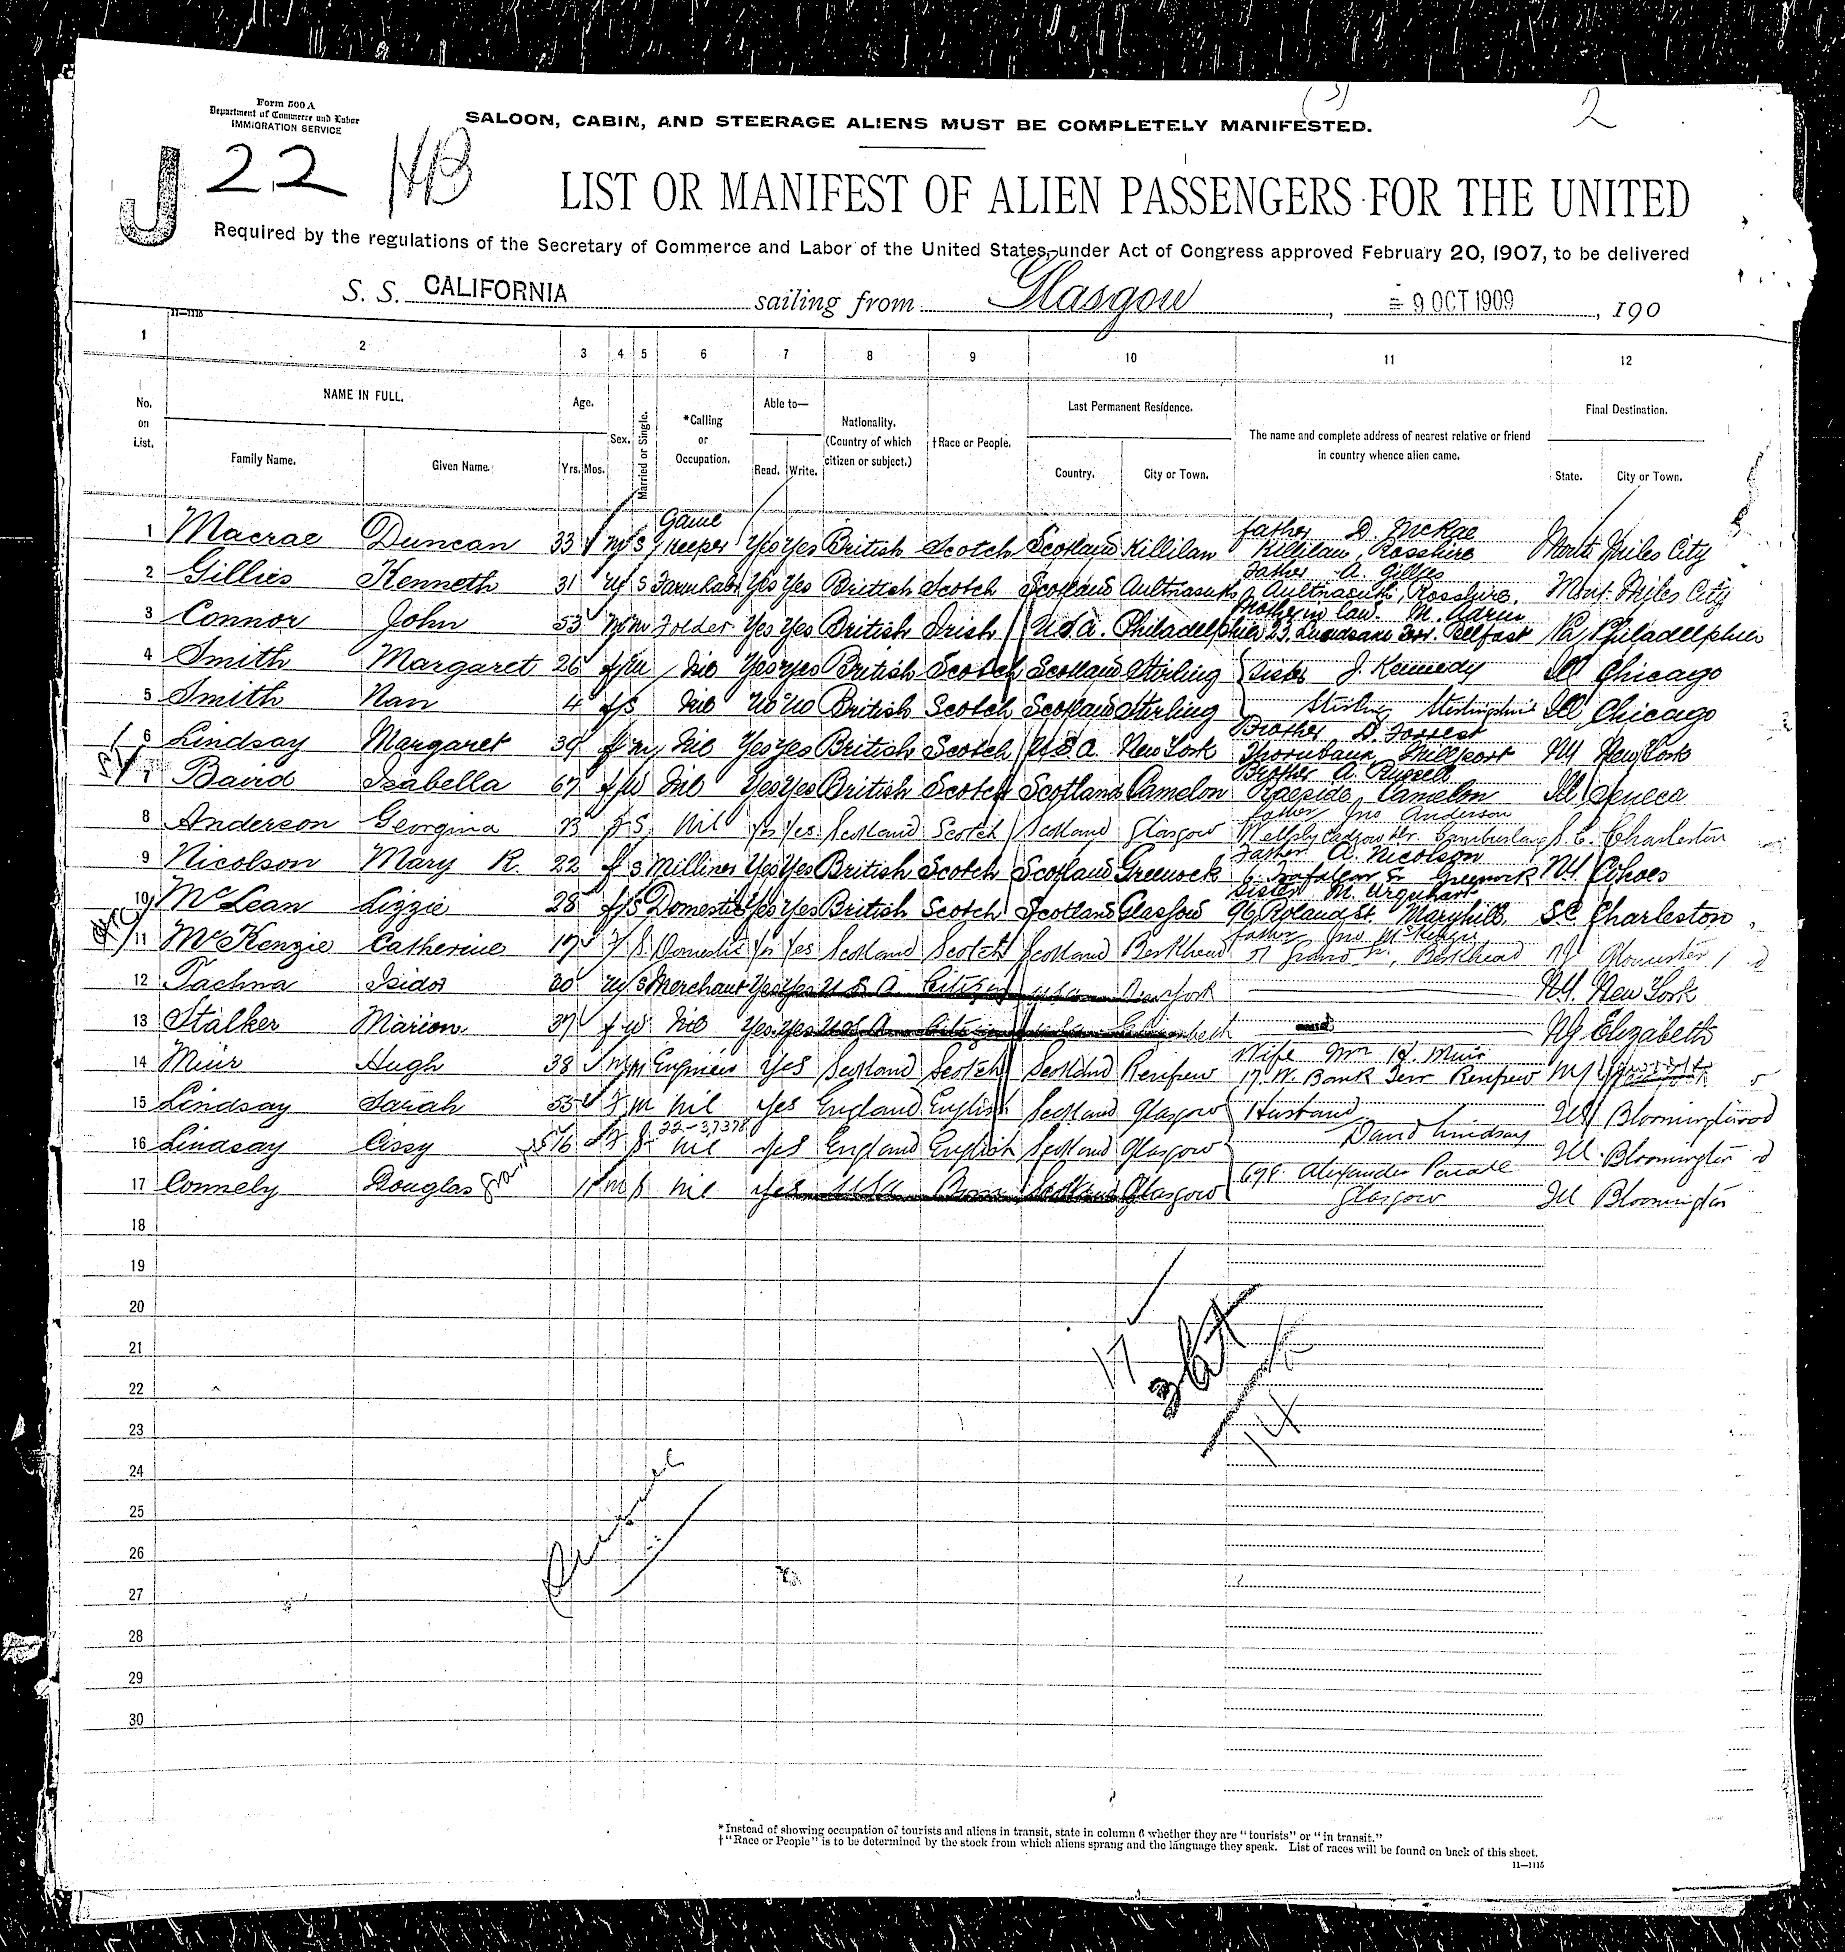 Form 500 A
Department of Commerce and Labor
IMMIGRATION SERVICE
SALOON, CABIN, AND STEERAGE ALIENS MUST BE COMPLETELY MANIFESTED.
(3)
2
J 22 HB
LIST OR MANIFEST OF ALIEN PASSENGERS FOR THE UNITED
Required by the regulations of the Secretary of Commerce and Labor of the United States, under Act of Congress approved February 20, 1907, to be delivered
S. S. CALIFORNIA sailing from Glasgow, 9 OCT 1909, 190
11—1115
1 2 3 4 5 6 7 8 9 10 11 12
No. on List.
NAME IN FULL.
Family Name. Given Name.
Age.
Yrs. Mos.
Sex.
Married or Single.
*Calling or Occupation.
Able to—
Read. Write.
Nationality. (Country of which citizen or subject.)
†Race or People.
Last Permanent Residence.
Country. City or Town.
The name and complete address of nearest relative or friend in country whence alien came.
Final Destination.
State. City or Town.
1 Macrae Duncan 33 m s Game Keeper Yes Yes British Scotch Scotland Killilan father D. McRae Killilan, Rosshire Mont. Miles City
2 Gillies Kenneth 31 m s Farm Lab Yes Yes British Scotch Scotland Aultnasuth father A. Gillies Aultnasuth, Rosshire. Mont. Miles City
3 Connor John 53 m m Folder Yes Yes British Irish U.S.A. Philadelphia Mother in law. M. Belfast Pa Philadelphia
4 Smith Margaret 26 f m Nil Yes Yes British Scotch Scotland Stirling Sister J. Kennedy Ill Chicago
5 Smith Nan 4 f s Nil No No British Scotch Scotland Stirling Stirling Stirlingshire Ill Chicago
6 Lindsay Margaret 39 f m Nil Yes Yes British Scotch U.S.A. New York Brother D. Forrest Thornbank, Millport NY New York
7 Baird Isabella 67 f w Nil Yes Yes British Scotch Scotland Camelon Brother A. Russell Raeside, Camelon Ill Seneca
8 Anderson Georgina f S Nil Yes Yes Scotland Scotch Scotland Glasgow father Jno Anderson S. C. Charleston
9 Nicolson Mary R. 22 f s Milliner Yes Yes British Scotch Scotland Greenock father A. Nicolson 6 Trafalgar St Greenock NY. Cohoes
10 McLean Lizzie 28 f s Domestic Yes Yes British Scotch Scotland Glasgow Sister M. Urquhart 96 Roland St. Maryhill. SC. Charleston
11 McKenzie Catherine 19 f S Domestic Yes Yes Scotland Scotch Scotland father Jno McKenzie NJ
12 Tachna Isidor 20 m s Merchant Yes Yes U S A Citizen USA New York NY. New York
13 Stalker Marion 37 f w Nil Yes Yes U S A Citizen NJ Elizabeth
14 Muir Hugh 38 m m Engineer Yes Scotland Scotch Scotland Renfrew Wife Mrs H. Muir 17 W. Bank Terr Renfrew
15 Lindsay Sarah 55 F m nil Yes England English Scotland Glasgow Husband Ill Bloomington
22-37378
16 Lindsay Cissy 16 F S nil Yes England English Scotland Glasgow David Lindsay Ill. Bloomington
17 Connely Douglas 11 m s nil Yes USA Born Scotland Glasgow 698 Alexander Parade Glasgow Ill Bloomington
18
19
20
21
22
23
24
25
26
27
28
29
30
17
14
*Instead of showing occupation of tourists and aliens in transit, state in column 6 whether they are "tourists" or "in transit."
†"Race or People" is to be determined by the stock from which aliens sprang and the language they speak. List of races will be found on back of this sheet.
11—1115